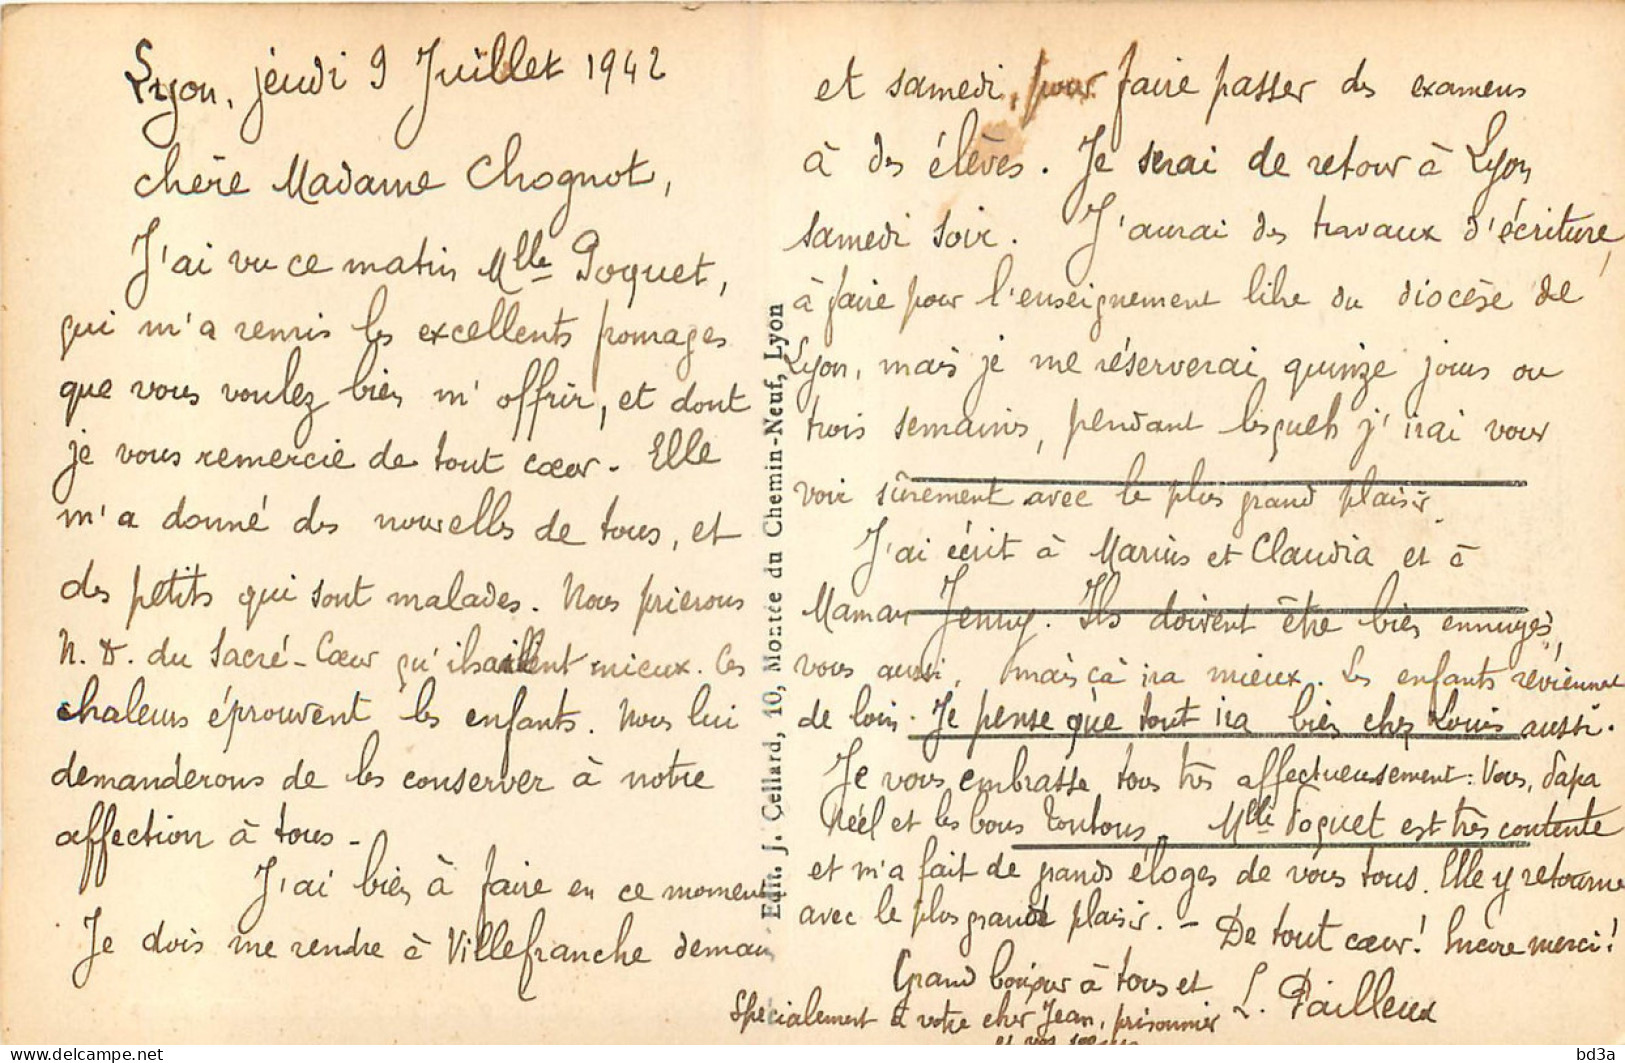 Lyon, jeudi 9 Juillet 1942
chère Madame Chognot,
J'ai vu ce matin Mlle Poquet,
qui m'a remis les excellents fromages
que vous voulez bien m'offrir, et dont
je vous remercie de tout cœur. Elle
m'a donné des nouvelles de tous, et
des petits qui sont malades. Nous prierons
N. D. du Sacré-Cœur qu'ils aillent mieux. Ces
chaleurs éprouvent les enfants. Nous lui
demanderons de les conserver à notre
affection à tous.
J'ai bien à faire en ce moment
Je dois me rendre à Villefranche demain
Edit. J. Cellard, 10, Montée du Chemin-Neuf, Lyon
et samedi, pour faire passer des examens
à des élèves. Je serai de retour à Lyon
samedi soir. J'aurai des travaux d'écriture,
à faire pour l'enseignement libre du diocèse de
Lyon, mais je me réserverai quinze jours ou
trois semaines, pendant lesquels j'irai vous
voir sûrement avec le plus grand plaisir.
J'ai écrit à Marius et Claudia et à
Maman Jenny. Ils doivent être bien ennuyés,
vous aussi, mais çà ira mieux. Les enfants reviennent
de loin. Je pense que tout ira bien chez Louis aussi.
Je vous embrasse tous très affectueusement : Vous, Papa
Réel et les bons Tontons. Mlle Poquet est très contente
et m'a fait de grands éloges de vous tous. Elle y retourne
avec le plus grand plaisir. - De tout cœur ! Encore merci !
Grand bonjour à tous et
Spécialement à votre cher Jean, prisonnier
et vos
L. Pailleux
bd3a